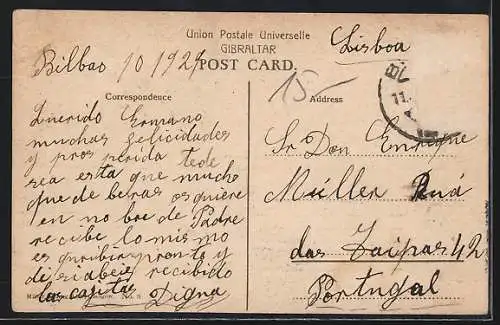 Union Postale Universelle
GIBRALTAR
POST CARD.
Lisboa
Bilbao 10 1929
15-
Correspondence
Address
Querido Ermano
muchas felicidades
y pros perida tede
sea esta que mucho
que de beras os quiere
en no bre de Padre
recibe lo mismo
es quribir pronto y
di si abeis recibido
las cajitas Digna
Sr Don Enrique
Müller Ruá
das Taipas 42
Portugal